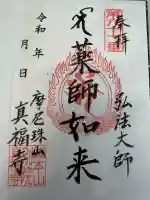 奉拝
弘法大師
薬師如来
令和 年 月 日
摩尼珠山
真福寺